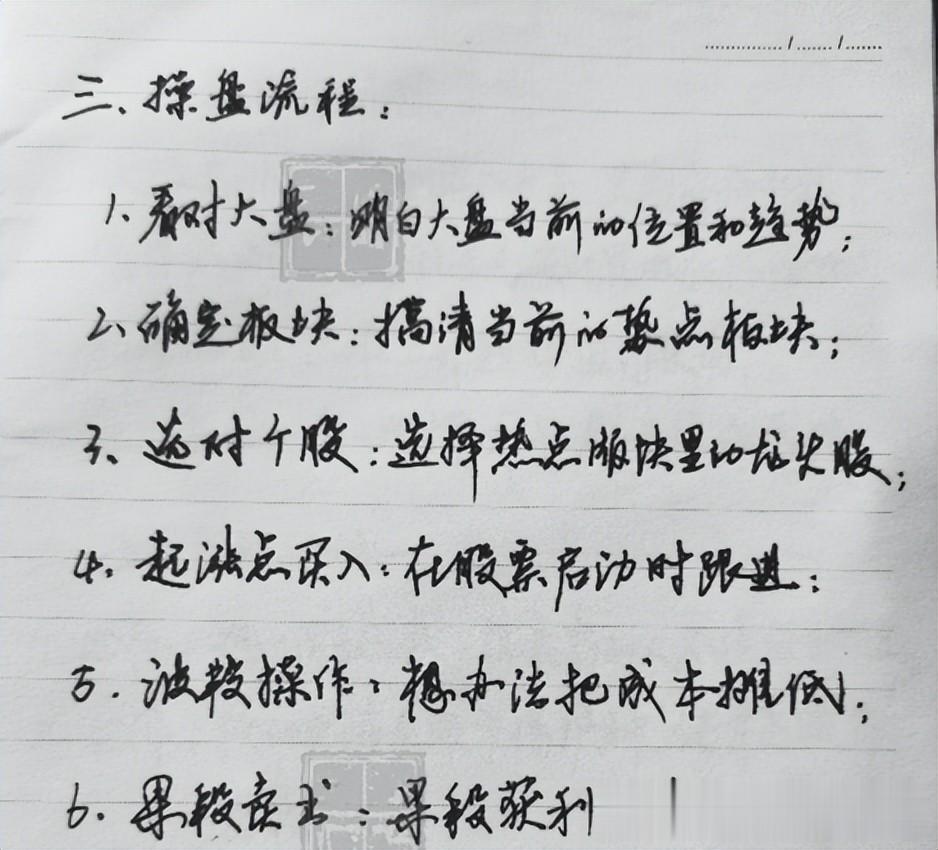 三、操盘流程：
1、看对大盘：明白大盘当前的位置和趋势；
2、确定板块：搞清当前的热点板块；
3、选对个股：选择热点版块里的龙头股；
4、起涨点买入：在股票启动时跟进；
5.波段操作：想办法把成本摊低；
6.果段卖出：果段获利